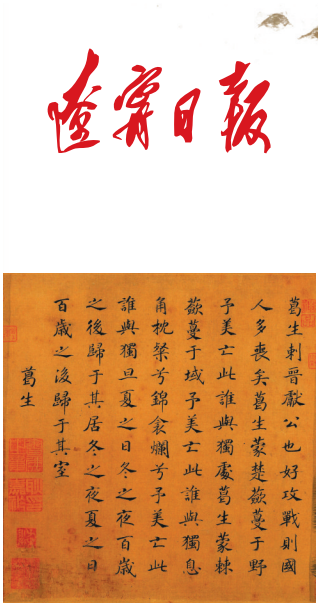 遼寧日報
葛生刺晉獻公也好攻戰則國
人多喪矣葛生蒙楚蘞蔓于野
予美亡此誰與獨處葛生蒙棘
蘞蔓于域予美亡此誰與獨息
角枕粲兮錦衾爛兮予美亡此
誰與獨旦夏之日冬之夜百歲
之後歸于其居冬之夜夏之日
百歲之後歸于其室
葛生